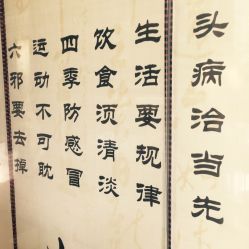 头病治当先
生活要规律
饮食须清淡
四季防感冒
运动不可耽
六邪要去掉